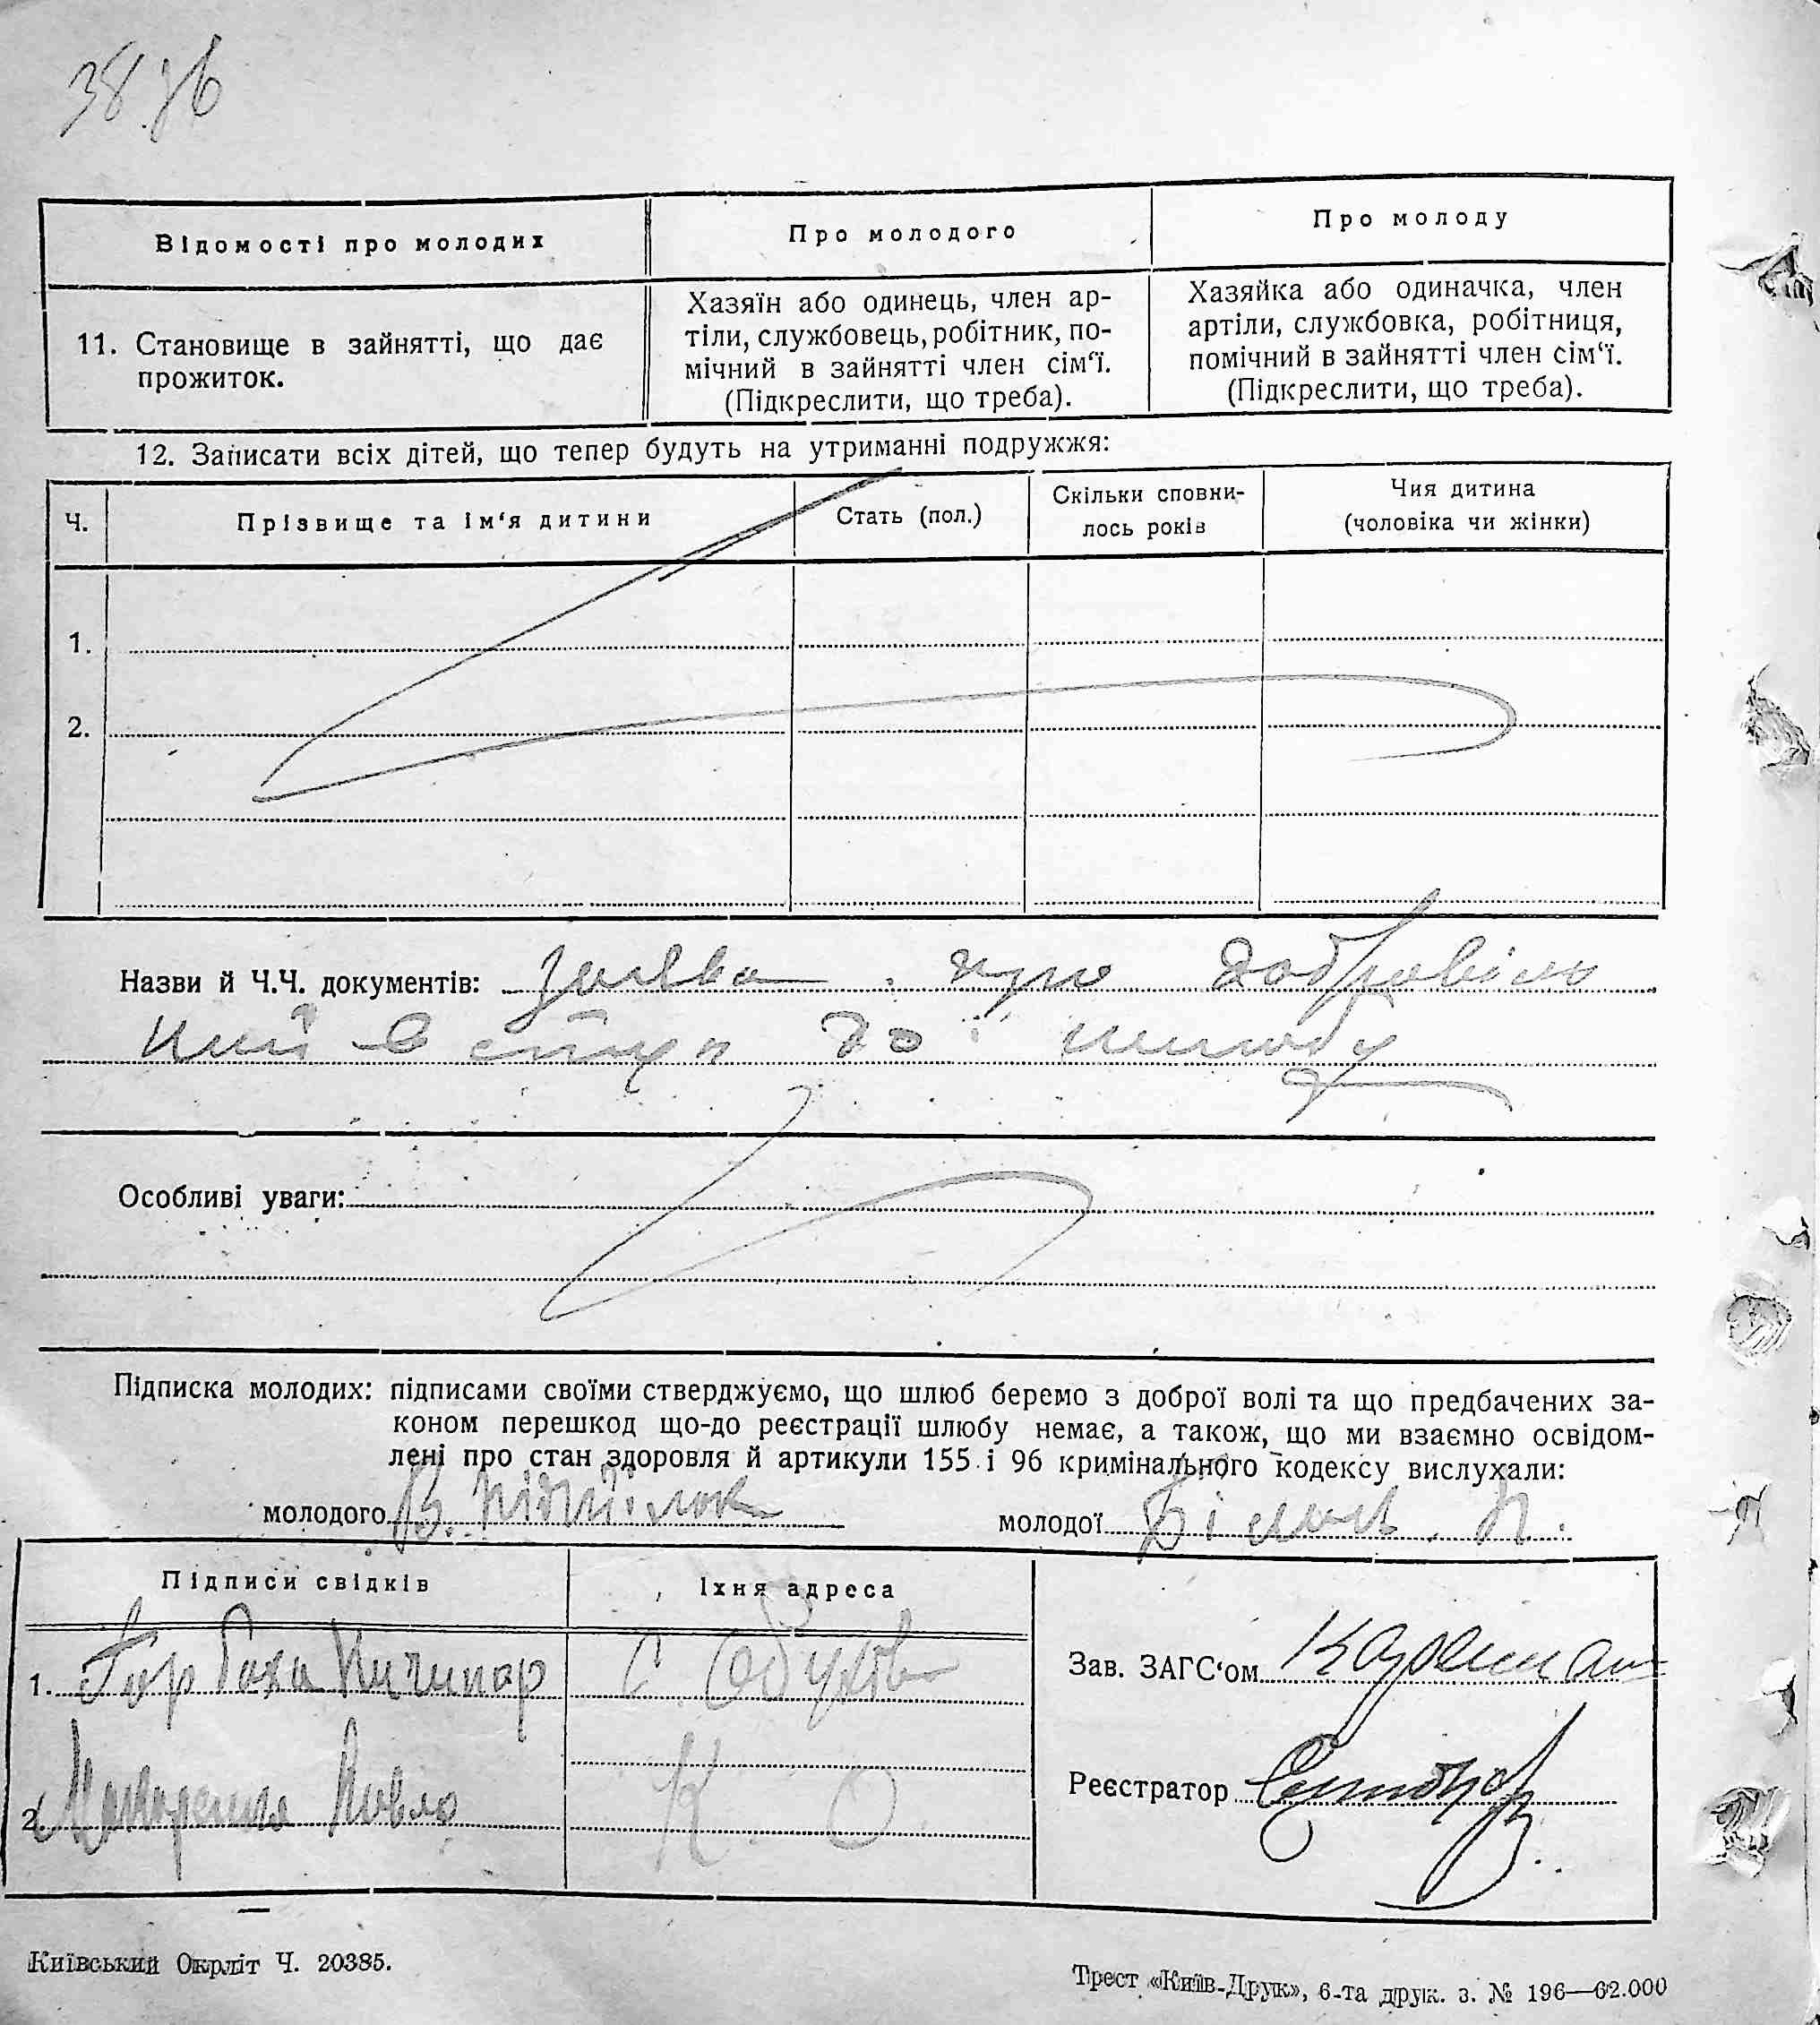 38 зв
Відомості про молодих
Про молодого
Про молоду
11. Становище в зайнятті, що дає
прожиток.
Хазяїн або одинець, член ар-
тіли, службовець, робітник, по-
мічний в зайнятті член сім‘ї.
(Підкреслити, що треба).
Хазяйка або одиначка, член
артіли, службовка, робітниця,
помічний в зайнятті член сім‘ї.
(Підкреслити, що треба).
12. Записати всіх дітей, що тепер будуть на утриманні подружжя:
Ч.
Прізвище та ім‘я дитини
Стать (пол.)
Скільки сповни-
лось років
Чия дитина
(чоловіка чи жінки)
1.
2.
Назви й Ч.Ч. документів: Заява про добровіль
ний вступ до шлюбу
Особливі уваги:
Підписка молодих: підписами своїми стверджуємо, що шлюб беремо з доброї волі та що предбачених за-
коном перешкод що-до реєстрації шлюбу немає, а також, що ми взаємно освідом-
лені про стан здоровля й артикули 155 і 96 кримінального кодексу вислухали:
молодого В.
молодої П.
Підписи свідків
Їхня адреса
1. Горбаха Ничипор
с. Обухов
2. Макаренко Павло
К О
Зав. ЗАГС‘ом
Реєстратор
Київський Окрліт Ч. 20385.
Трест «Київ-Друк», 6-та друк. з. № 196—62.000